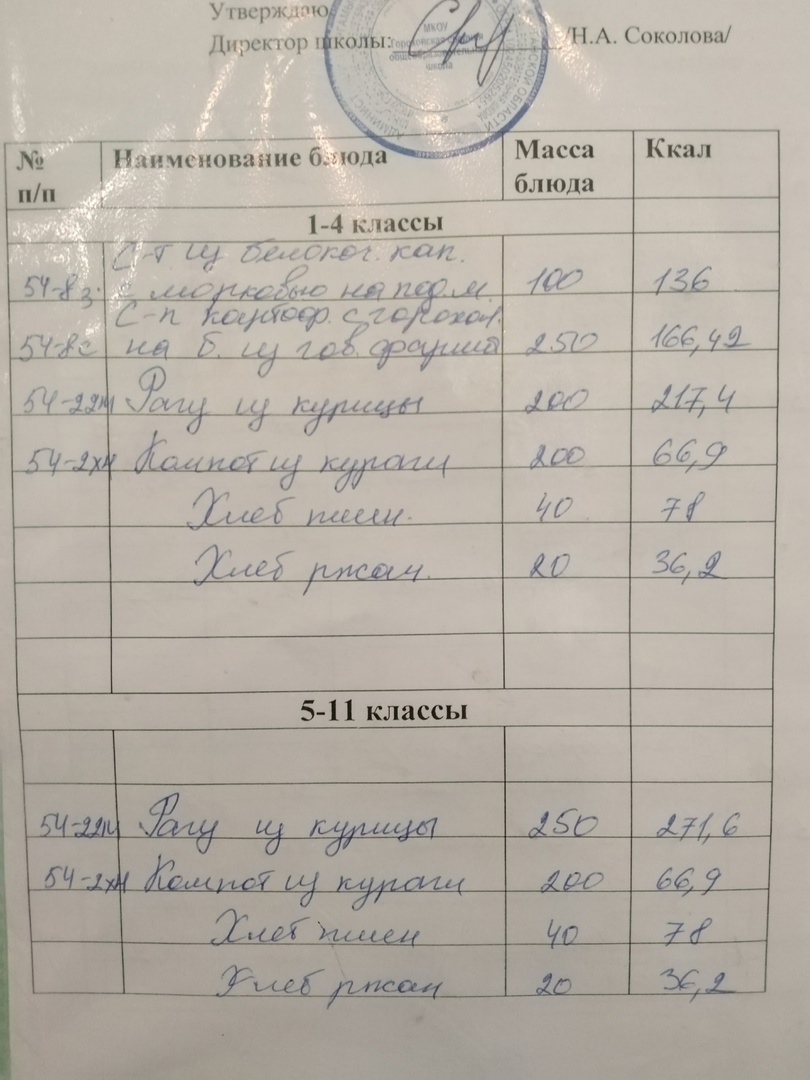 Утверждаю
Директор школы: /Н.А. Соколова/
МКОУ
общеобразовательная
школа
№ п/п Наименование блюда Масса блюда Ккал
1-4 классы
С-т из белокоч. кап.
54-8з с морковью на под.м. 100 136
С-п картоф. с горохом
54-8с на б. из гов. фарша 250 166,42
54-22м Рагу из курицы 200 217,4
54-2хн Компот из кураги 200 66,9
Хлеб пшен. 40 78
Хлеб ржан. 20 36,2
5-11 классы
54-22м Рагу из курицы 250 271,6
54-2хн Компот из кураги 200 66,9
Хлеб пшен 40 78
Хлеб ржан 20 36,2